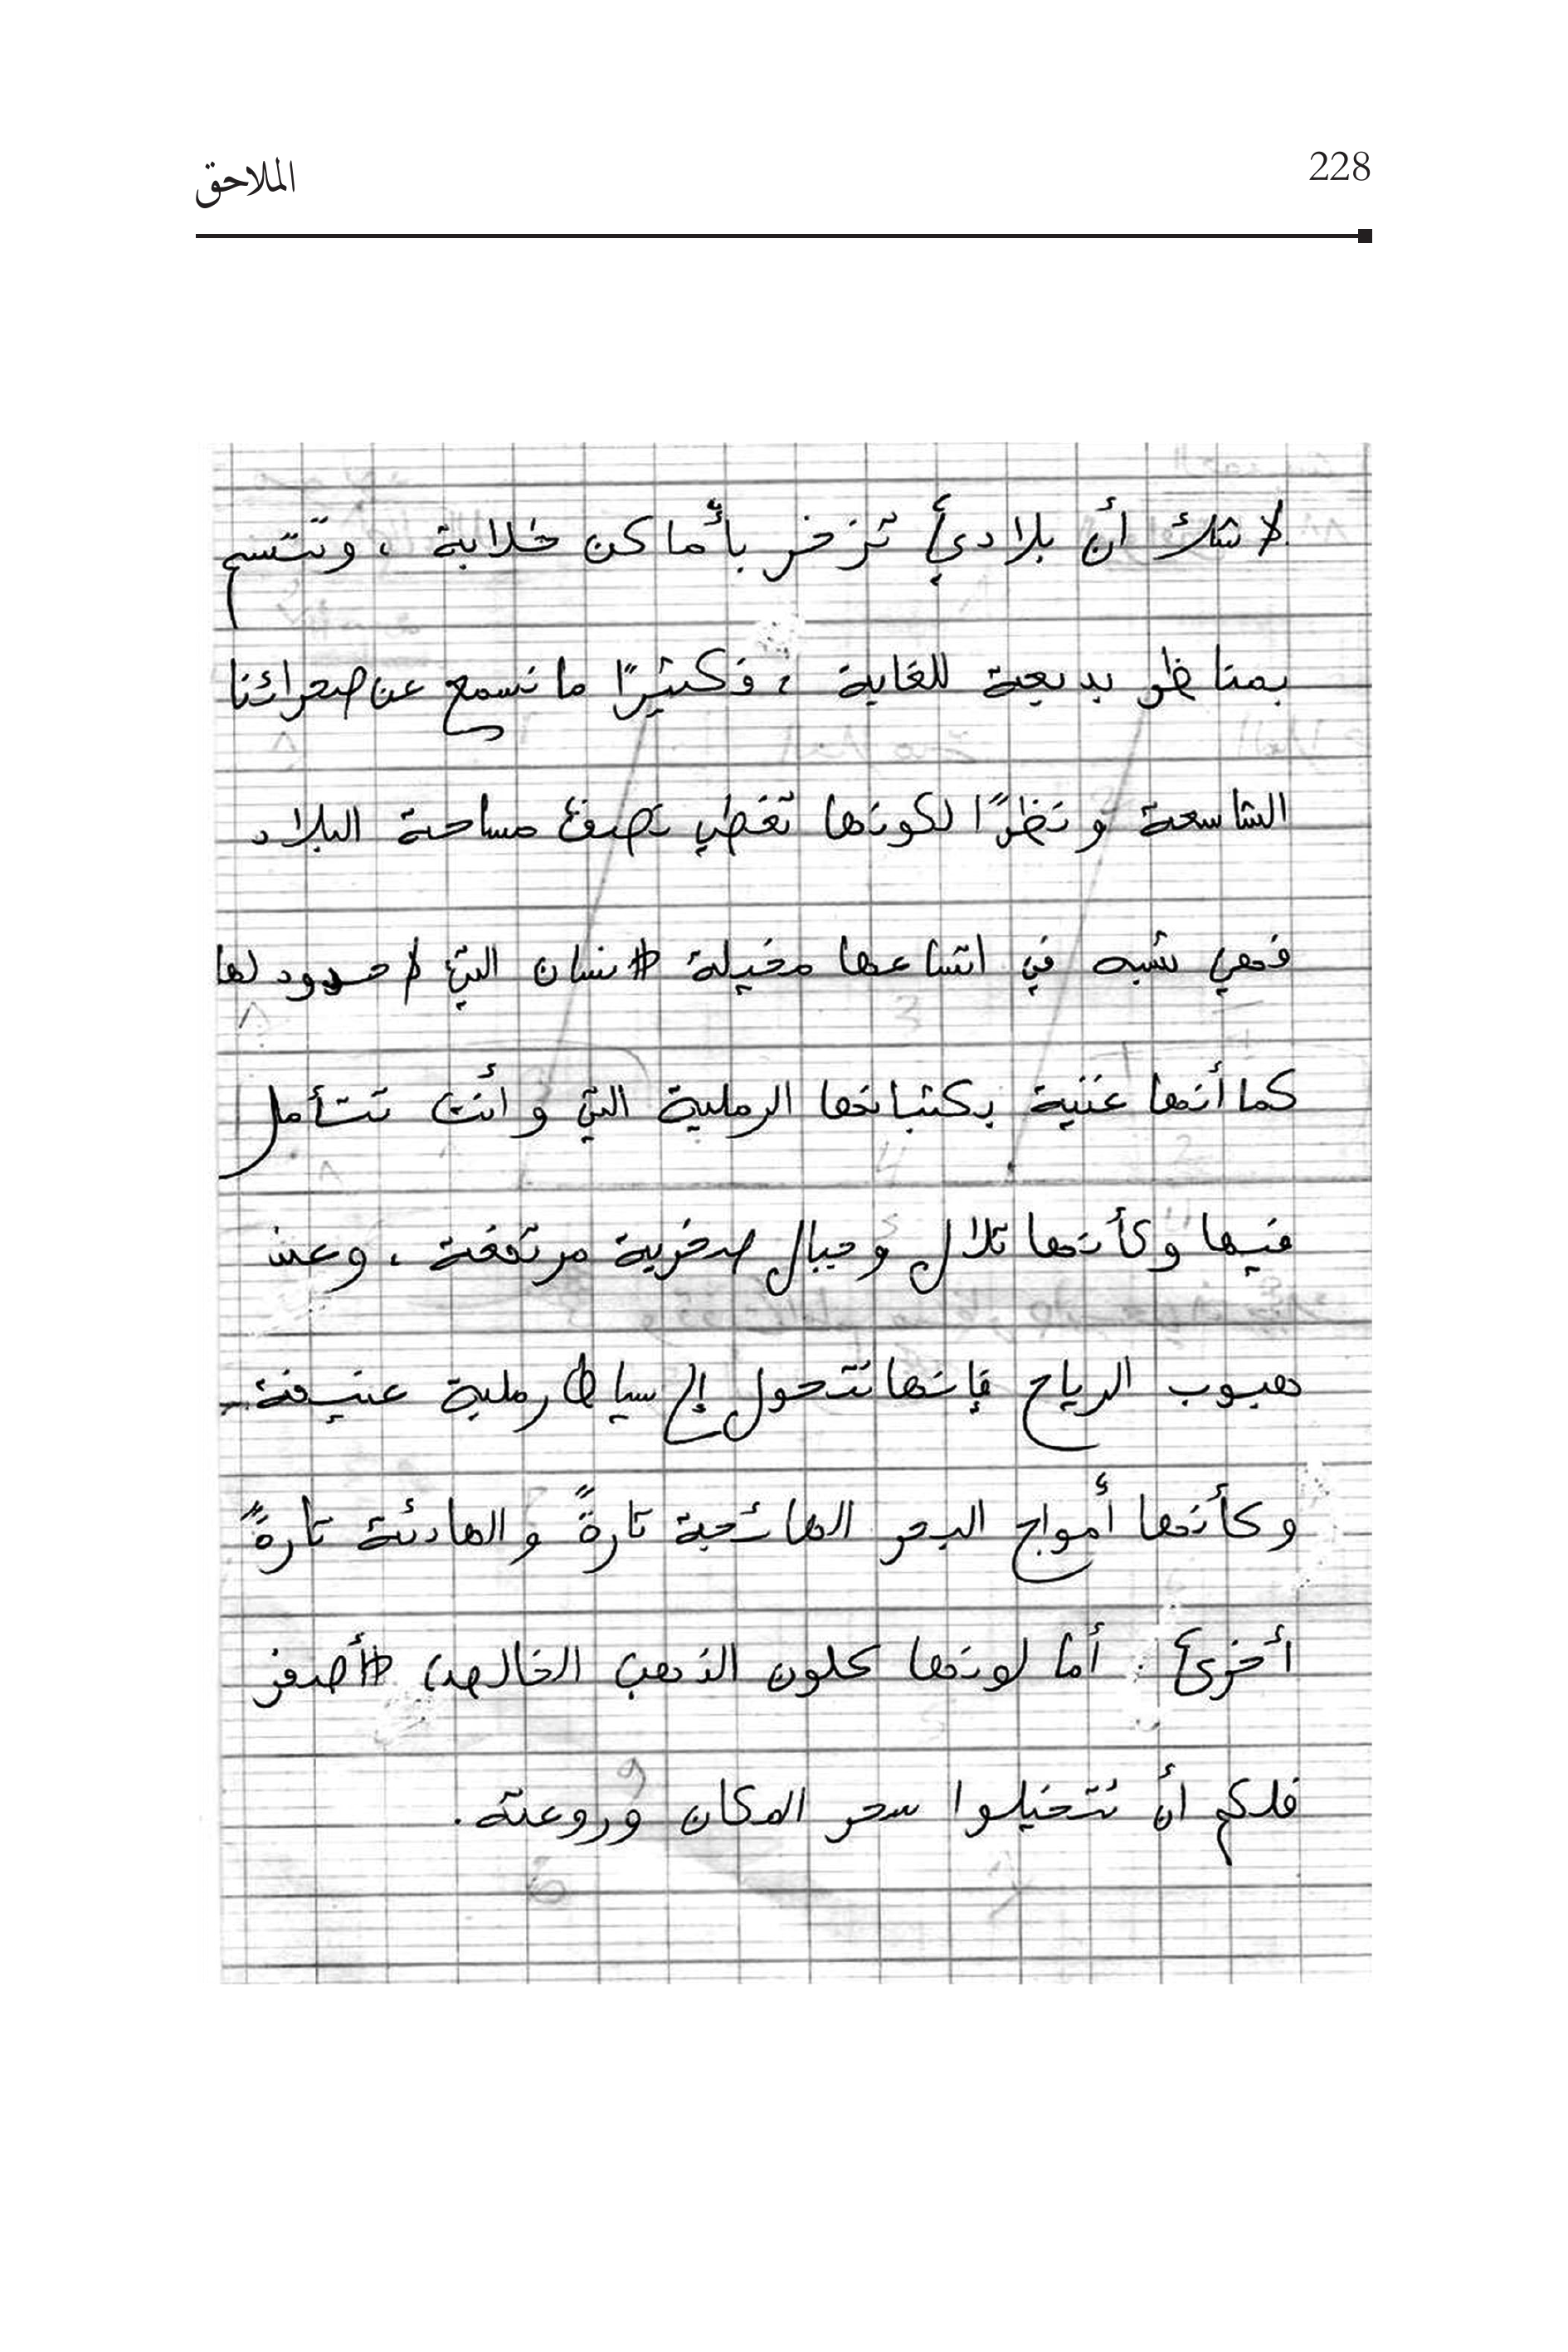 228
الملاحق
لا شك أن بلادي تزخر بأماكن خلابة ، وتتسم
بمناظر بديعة للغاية ، فكثيرًا ما نسمع عن صحرائنا
الشاسعة ونظرًا لكونها تغطي نصف مساحة البلاد
فهي تشبه في اتساعها مخيلة الانسان التي لا حدود لها
كما أنها غنية بكتبانها الرملية التي وأنت تتأمل
فيها وكأنها تلال وجبال صخرية مرتفعة ، وعند
هبوب الرياح فإنها تتحول إلى سياط رملية عنيفة
وكأنها أمواج البحر الهائجة تارةً والهادئة تارةً
أخرى . أما لونها كلون الذهب الخالص الأصفر
فلكم أن تتخيلوا سحر المكان وروعته .